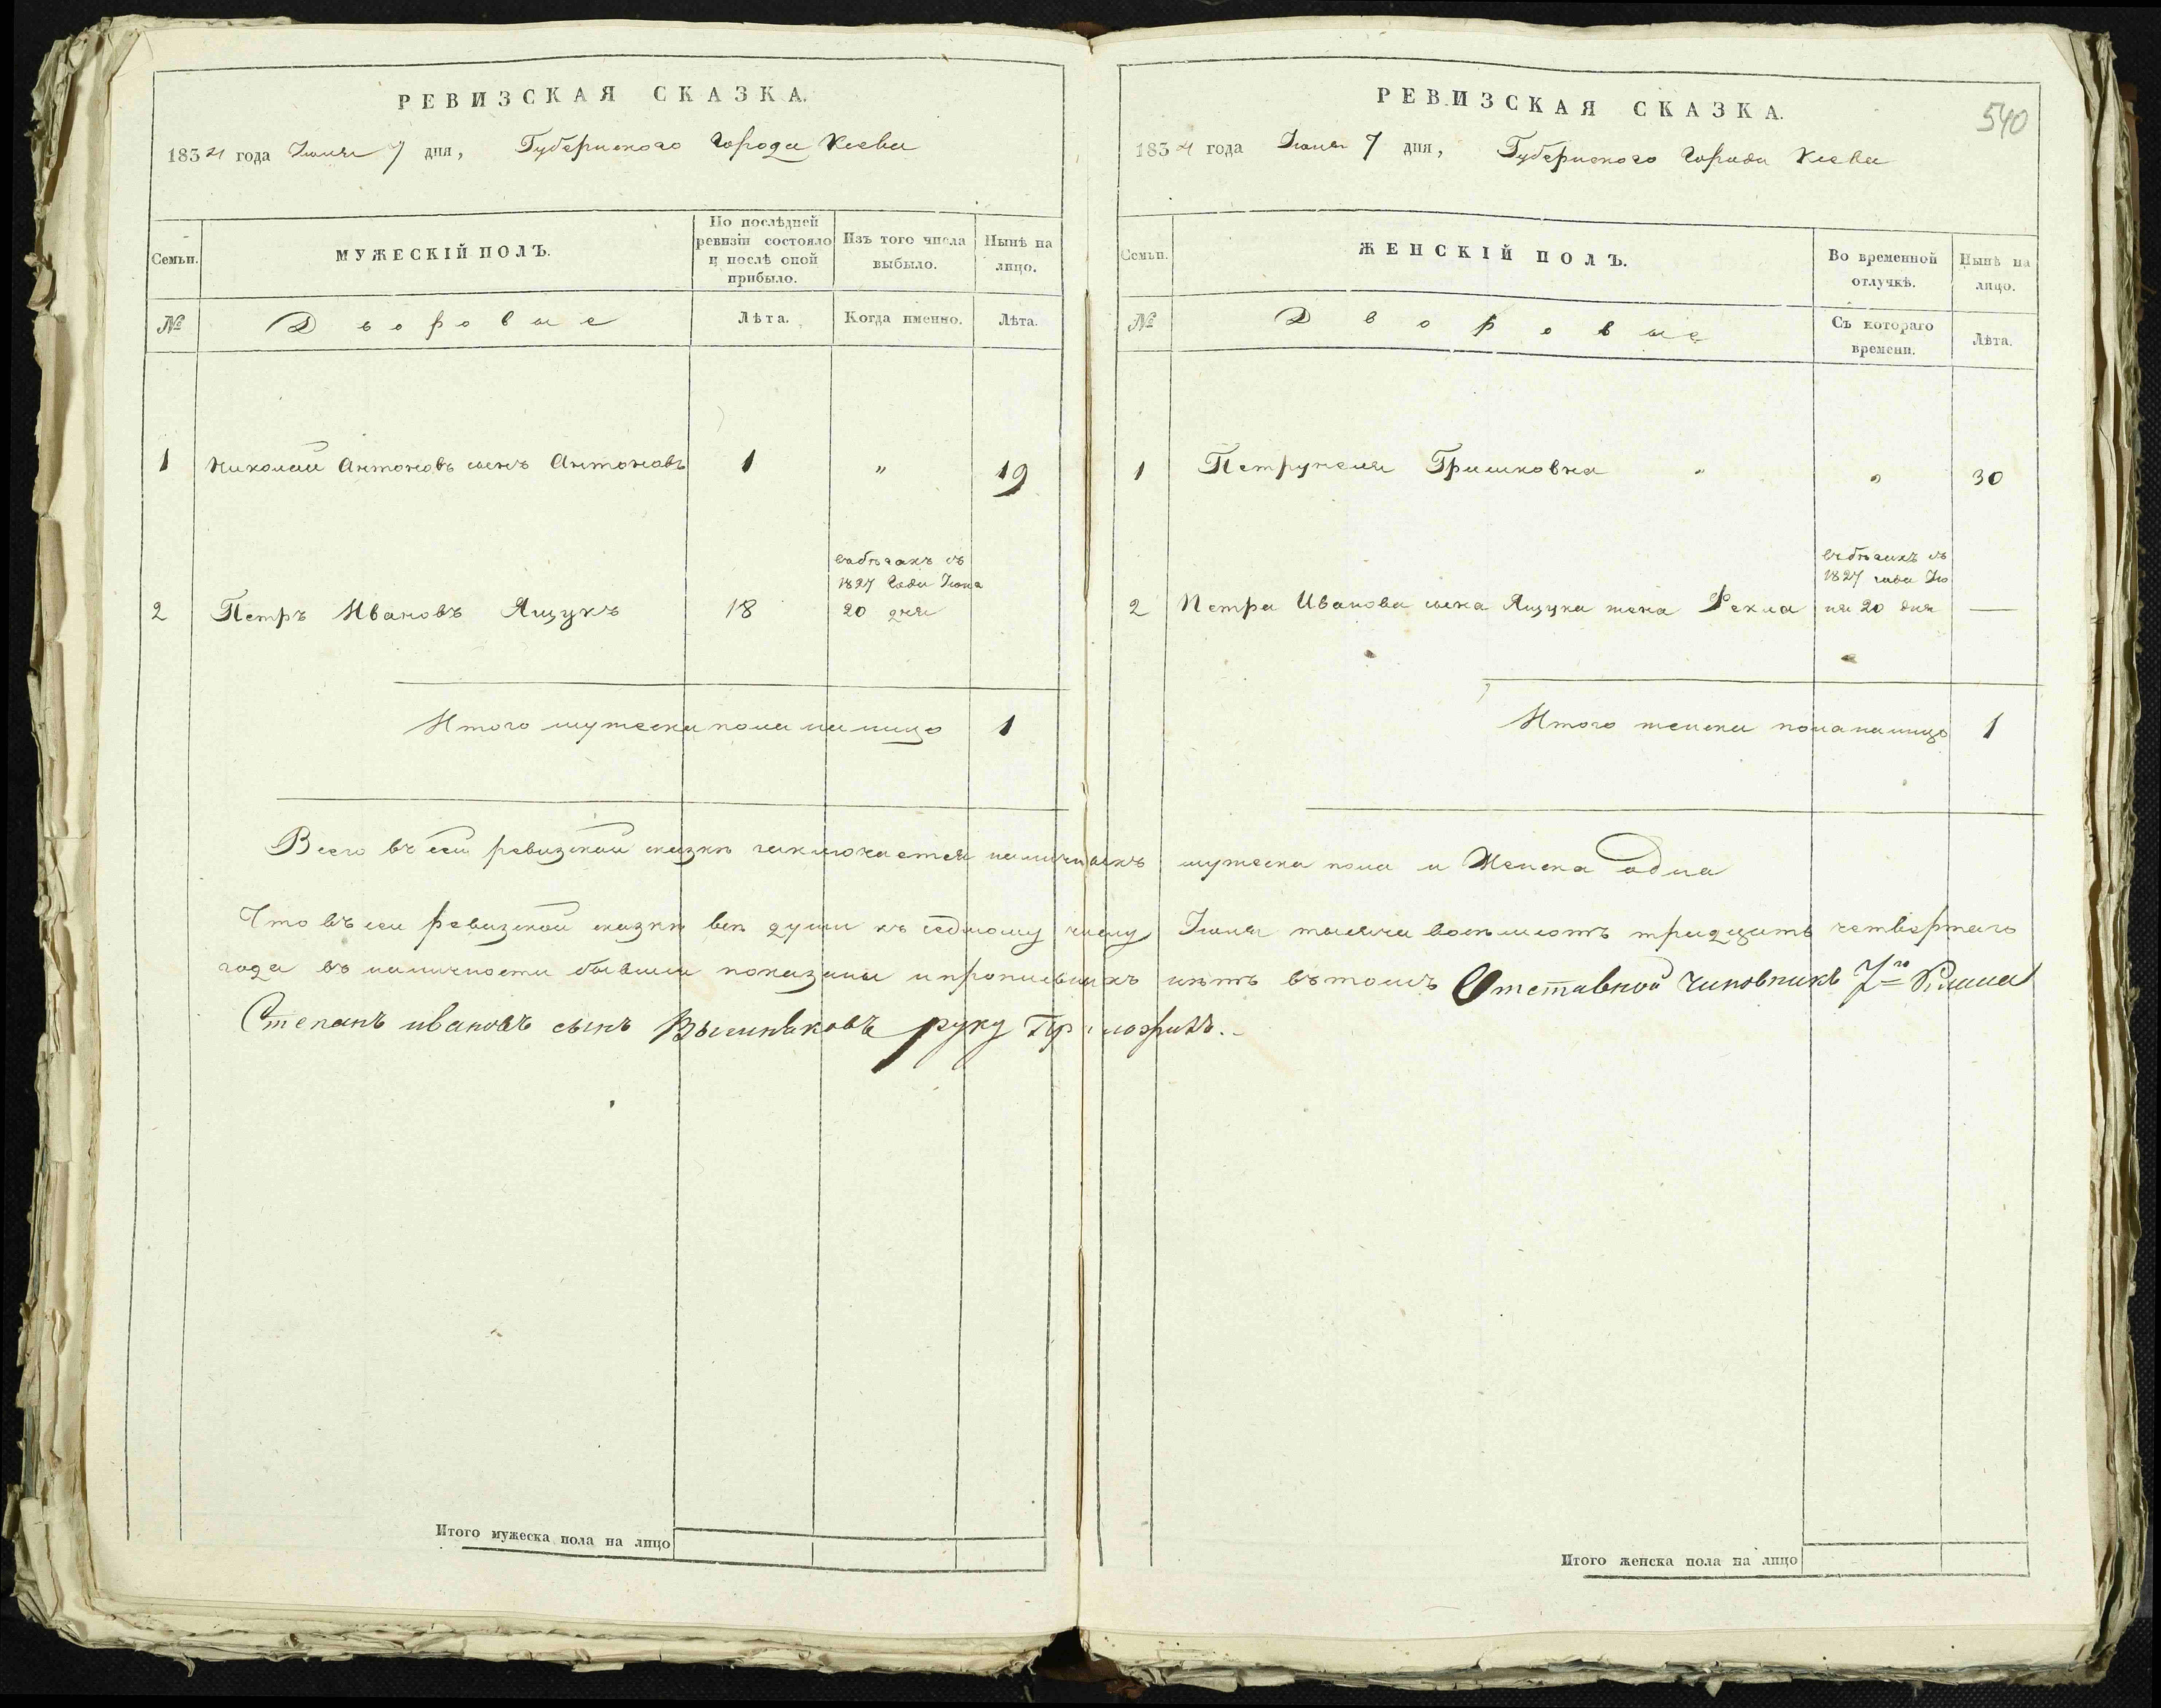 РЕВИЗСКАЯ СКАЗКА.
1834 года Июня 7 дня, Губернского Города Киева
Семьи.
МУЖЕСКІЙ ПОЛЪ.
По послѣдней ревизіи состояло и послѣ оной прибыло.
Изъ того числа выбыло.
Нынѣ на лицо.
№
Дворовые
Лѣта.
Когда именно.
Лѣта.
1 Николай Антоновъ сынъ Антоновъ 1 " 19
въ бѣгахъ съ
1827 Года Июня
2 Петръ Ивановъ Ящукъ 18 20 дня
Итого мужеска пола на лицо 1
РЕВИЗСКАЯ СКАЗКА.
540
1834 года Июня 7 дня, Губернского Города Киева
Семьи.
ЖЕНСКІЙ ПОЛЪ.
Во временной отлучкѣ.
Нынѣ на лицо.
№
Дворовые
Съ котораго времени.
Лѣта.
1 Петрунеля Гришковна " " 30
въ бѣгахъ съ
1827 года Ію
2 Петра Иванова сына Ящука жена Фекла ня 20 дня —
Итого женска пола на лицо 1
Всего въ сей ревизской сказкѣ заключается наличныхъ мужеска пола и Женска одна
Что въ сей ревизской сказкѣ всѣ души къ седмому числу Июня тысяча восемьсотъ тридцать четвертаго
года въ наличности бывшiя показаны и прописныхъ нѣтъ въ томъ Отставной Чиновникъ 7го Класса
Степанъ ивановъ сынъ руку Приложилъ.
Итого мужеска пола на лицо
Итого женска пола на лицо